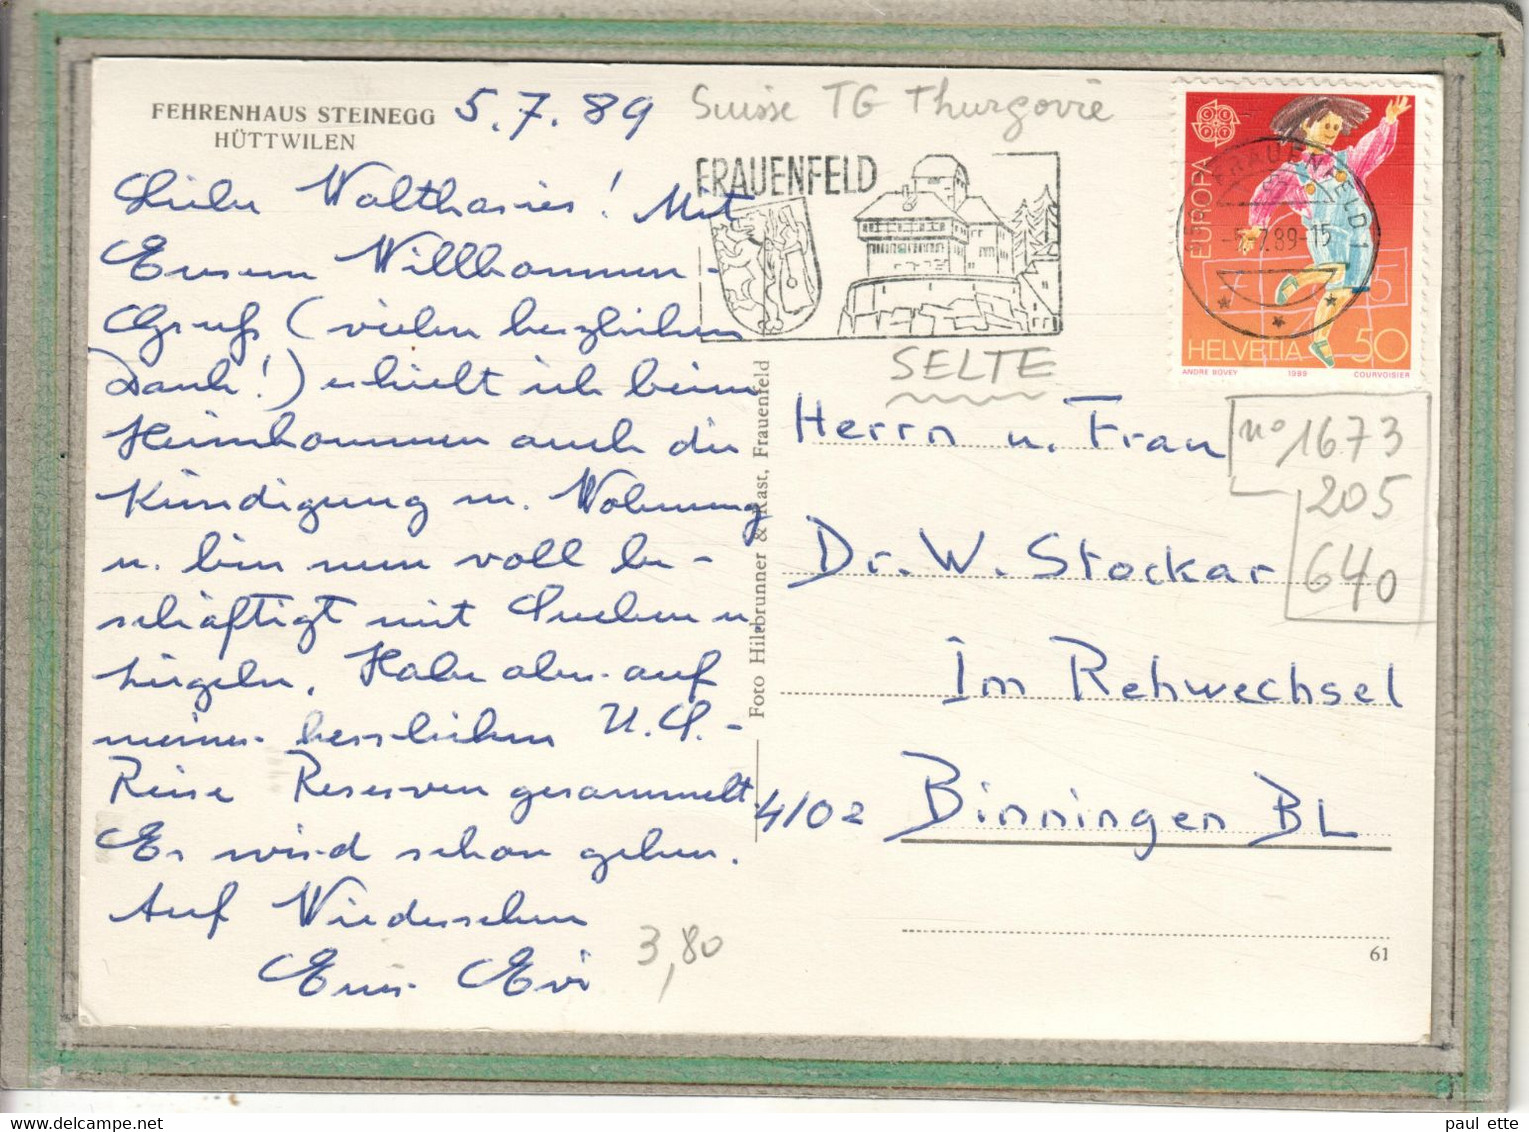 FEHRENHAUS STEINEGG
HÜTTWILEN
5.7.89
Suisse TG Thurgovie
Liebe Walthasies! Mit
Eurem Willkommen-
Gruss (vielen herzlichen
Dank!) erhielt ich beim
Heimkommen auch die
Kündigung m. Wohnung
u. bin nun voll be-
schäftigt mit Suchen u.
hirgeln. Habe aber auf
meiner herrlichen U.S.-
Reise Reserven gesammelt.
Es wird schon gehen.
Auf Wiedersehen
Eure Evi
3,80
Foto Hiltbrunner & Kast, Frauenfeld
FRAUENFELD
SELTE
EUROPA
HELVETIA 50
ANDRE BOVEY 1989 COURVOISIER
FRAUENFELD 1
-5.-7.89-15
n° 1673
205
640
Herrn u. Frau
Dr. W. Stockar
Im Rehwechsel
4102 Binningen BL
61
paul ette